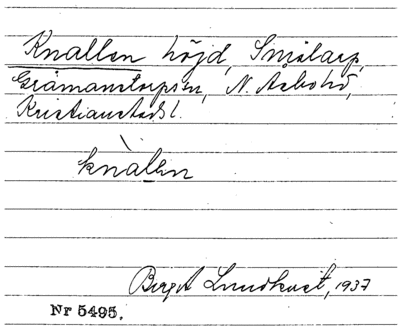 Knallen höjd, Smålarp,
Gråmanstorps sn, N. Åsbo hd,
Kristianstads l.
knàlen
Birgit Lundkvist, 1937
Nr 5495.